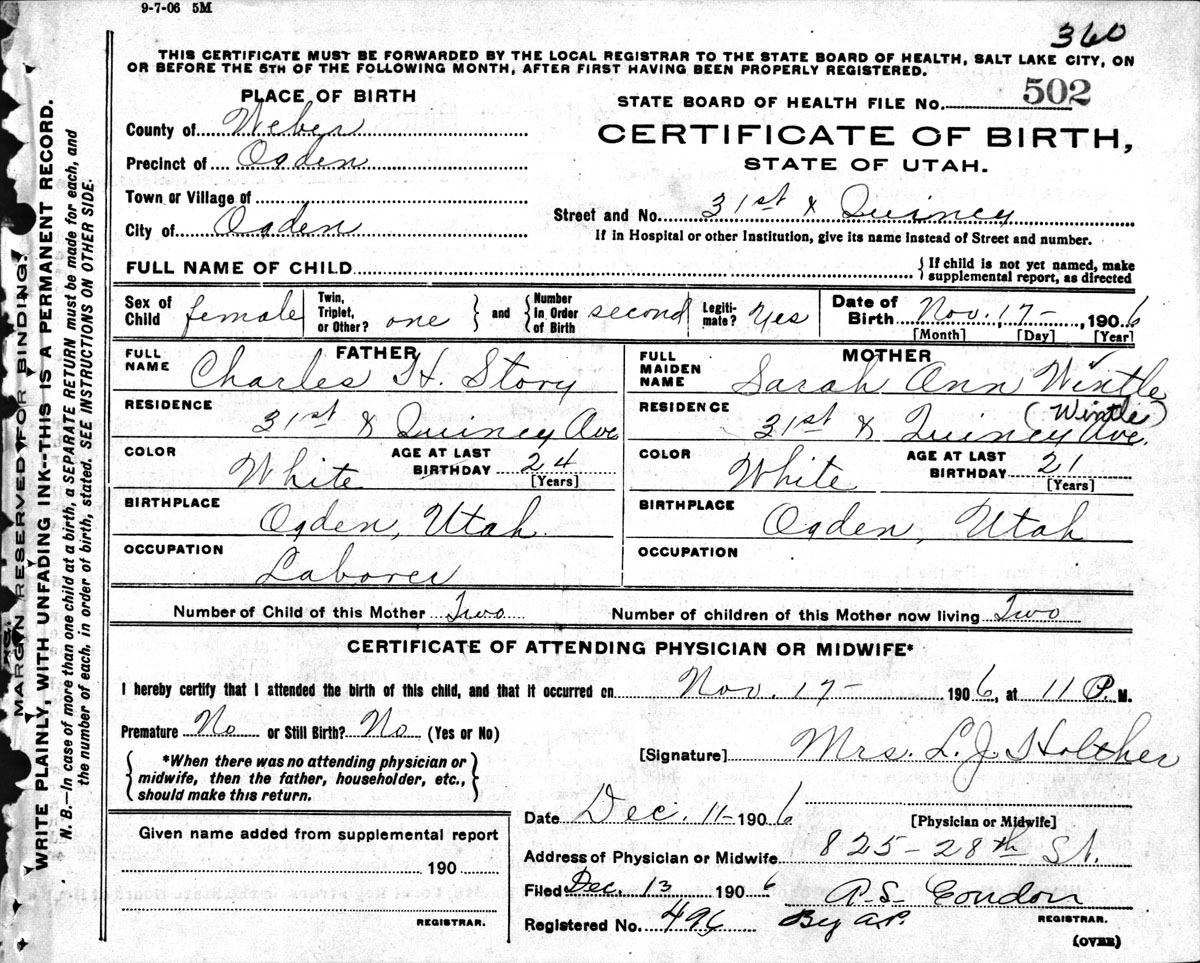 9-7-06 5M
360
THIS CERTIFICATE MUST BE FORWARDED BY THE LOCAL REGISTRAR TO THE STATE BOARD OF HEALTH, SALT LAKE CITY, ON
OR BEFORE THE 5TH OF THE FOLLOWING MONTH, AFTER FIRST HAVING BEEN PROPERLY REGISTERED.
PLACE OF BIRTH
County of Weber
Precinct of Ogden
Town or Village of
City of Ogden
STATE BOARD OF HEALTH FILE No. 502
CERTIFICATE OF BIRTH,
STATE OF UTAH.
Street and No. 31st & Quincy
If in Hospital or other Institution, give its name instead of Street and number.
FULL NAME OF CHILD { If child is not yet named, make
supplemental report, as directed
Sex of Child female
Twin, Triplet, or Other? one } and { Number In Order of Birth second
Legitimate? Yes
Date of Birth Nov. 17-, 1906
[Month] [Day] [Year]
FATHER
FULL NAME Charles H. Story
RESIDENCE 31st & Quincy Ave
COLOR White AGE AT LAST BIRTHDAY 24
[Years]
BIRTHPLACE Ogden, Utah.
OCCUPATION Laborer
MOTHER
FULL MAIDEN NAME Sarah Ann Wintle
(Wintle)
RESIDENCE 31st & Quincy Ave.
COLOR White AGE AT LAST BIRTHDAY 21
[Years]
BIRTHPLACE Ogden, Utah
OCCUPATION
Number of Child of this Mother Two Number of children of this Mother now living Two
CERTIFICATE OF ATTENDING PHYSICIAN OR MIDWIFE*
I hereby certify that I attended the birth of this child, and that it occurred on Nov. 17- , 1906, at 11 P. M.
Premature No or Still Birth? No (Yes or No)
{ *When there was no attending physician or
midwife, then the father, householder, etc.,
should make this return. }
[Signature] Mrs. L. J. Holther
Date Dec. 11- 1906
[Physician or Midwife]
Address of Physician or Midwife 825-28th St.
Filed Dec. 13 1906 A-S- Condon
Registered No. 496 By A.P. REGISTRAR.
(OVER)
Given name added from supplemental report
190
REGISTRAR.
MARGIN RESERVED FOR BINDING!
WRITE PLAINLY, WITH UNFADING INK--THIS IS A PERMANENT RECORD.
N. B.—In case of more than one child at a birth, a SEPARATE RETURN must be made for each, and
the number of each, in order of birth, stated. SEE INSTRUCTIONS ON OTHER SIDE.